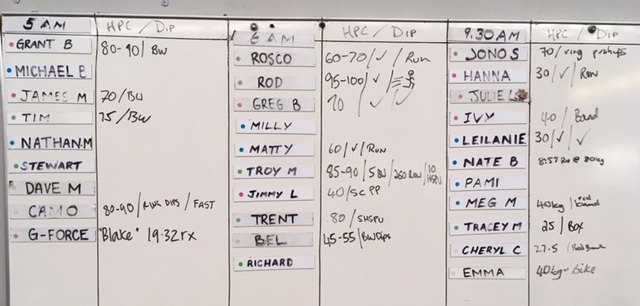 5 AM HPC/DIP
GRANT B 80-90/BW
MICHAEL B
JAMES M 70/BW
TIM 75/BW
NATHAN.M
STEWART
DAVE M
CAMO 80-90/ DIPS / FAST
G-FORCE "Blake" 19:32 rx
6 AM HPC/DIP
ROSCO 60-70/✓/Run
ROD 95-100/✓/
GREG B 70 / ✓ /
MILLY
MATTY 60/✓/RUN
TROY M 85-90/5 BW/260 Row/10 HSPU
JIMMY L 40/SC PP
TRENT 80/SHSPU
BEL 45-55/BW Dips
RICHARD
9.30AM HPC/DIP
JONO S 70/ring pushups
HANNA 30/✓/Row
JULIE L
IVY 40/Band
LEILANIE 30/✓/✓
NATE B @ 80kg
PAMI
MEG M 40kg/red band
TRACEY M 25/BOX
CHERYL C 27.5/
EMMA 40kg-Bike